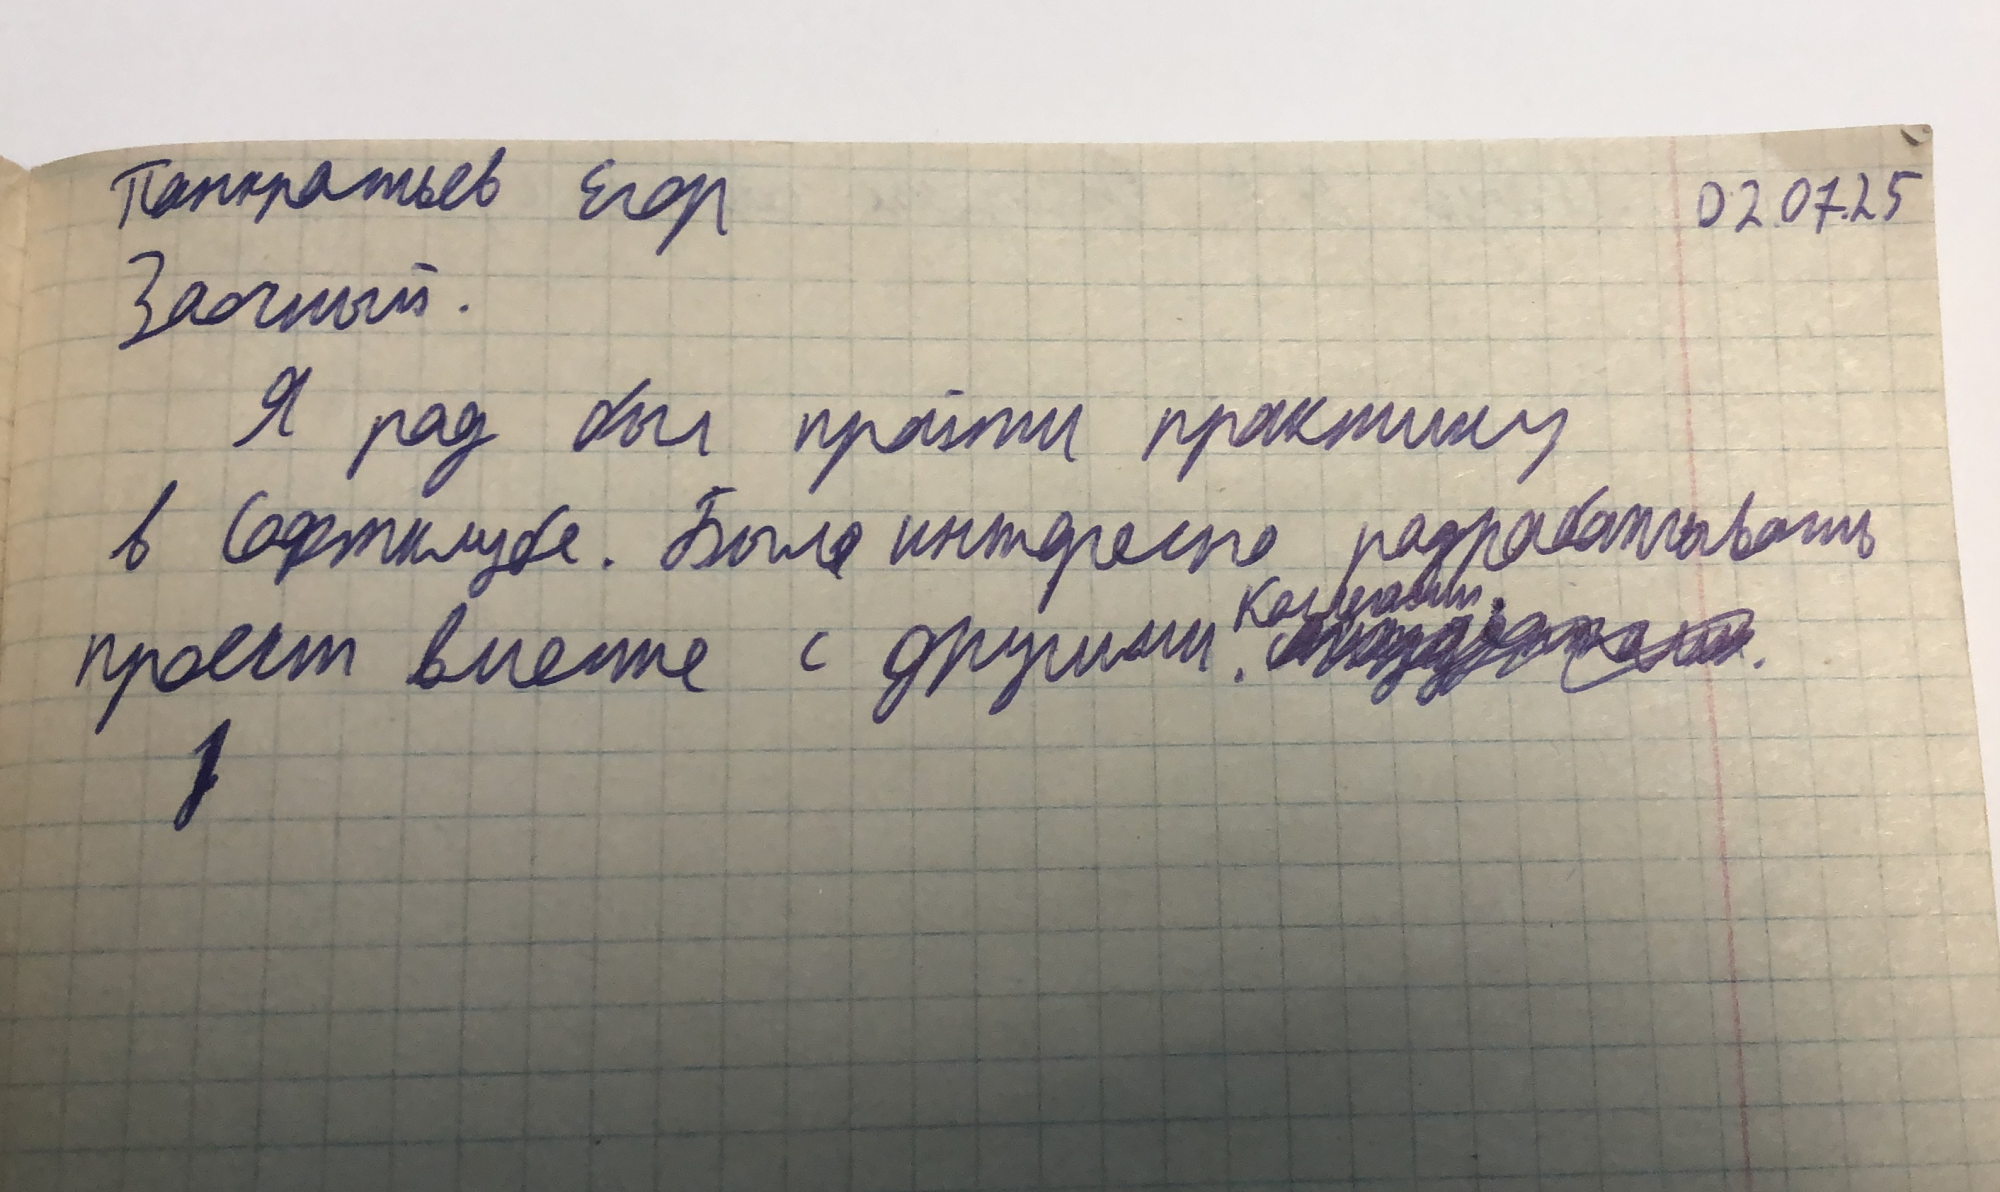 Панкратьев Егор 02.07.25
Заочный.
Я рад был пройти практику
в Софтклубе. Было интересно разрабатывать
проект вместе с другими коллегами.